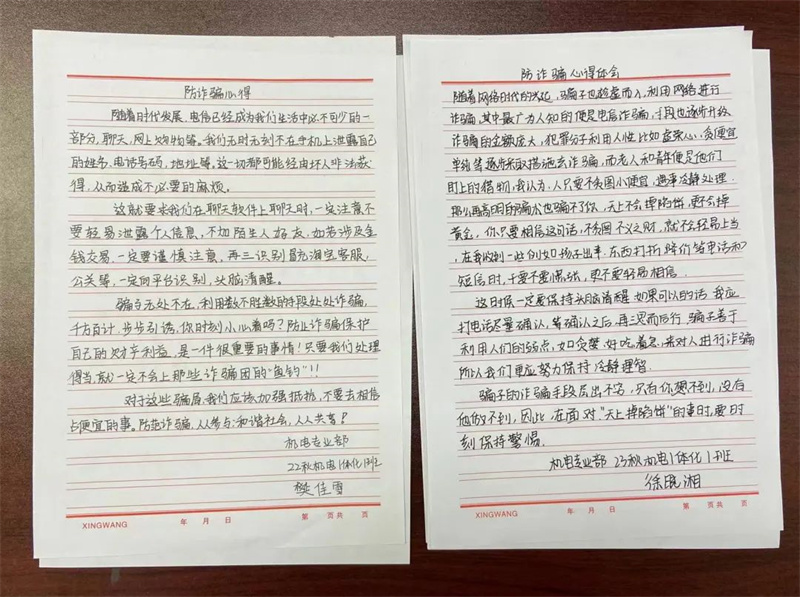 防诈骗心得
随着时代发展,电信已经成为我们生活中必不可少的一
部分,聊天、网上购物等。我们无时无刻不在手机上泄露自己
的姓名、电话号码、地址等。这一切都可能经由坏人非法获
得,从而造成不必要的麻烦。
这就要求我们在聊天软件上聊天时,一定注意不
要轻易泄露个人信息,不加陌生人好友,如若涉及金
钱交易,一定要谨慎注意,再三识别冒充淘宝客服,
公关等,一定向平台识别,头脑清醒。
骗子无处不在,利用数不胜数的手段处处诈骗,
千方百计,步步引诱,你时刻小心着吗?防止诈骗保护
自己的财产利益,是一件很重要的事情!只要我们处理
得当,就一定不会上那些诈骗团的“鱼钓”!!
对于这些骗局,我们应该加强抵抗,不要去相信
占便宜的事。防范诈骗,人人参与;和谐社会,人人共享!
机电专业部
22秋机电1体化1班
樊佳雪
XINGWANG 年 月 日 第 页共 页
防诈骗心得体会
随着网络时代的兴化,骗子也趁虚而入,利用网络进行
诈骗,其中最广为人知的便是电信诈骗,手段也逐渐升级
诈骗的金额庞大,犯罪分子利用人性比如虚荣心,贪便宜
单纯等逐步采取措施去诈骗,而老人和青年便是他们
盯上的猎物,我认为,人只要不贪图小便宜,遇事冷静处理
那么再高明的骗术也骗不了你,天上不会掉馅饼,更不会掉
黄金,你只要相信这句话,不贪图不义之财,就不会轻易上当
在我收到一些例如扬子出车、东西打折 转们等电话和
短信时,千要不要慌张,更不要轻易相信.
这时候一定要保持头脑清醒 如果可以的话 我应
打电话尽量确认,等确认之后,再三思而后行,骗子善于
利用人们的弱点,如贪婪、好吃着急,来对人进行诈骗
所以我们更应努力保持冷静理智.
骗子的诈骗手段层出不穷,只有你想不到,没有
他做不到,因此,在面对“天上掉馅饼”的事时,要时
刻保持警惕.
机电专业部 23秋机电1体化1班
徐晓湘
XINGWANG 年 月 日 第 页共 页